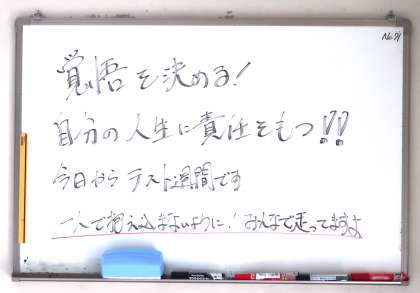 No.91
覚悟を決める!
自分の人生に責任をもつ!!
今日から テスト週間です
一人で抱え込まないように! みんなで走ってますよ